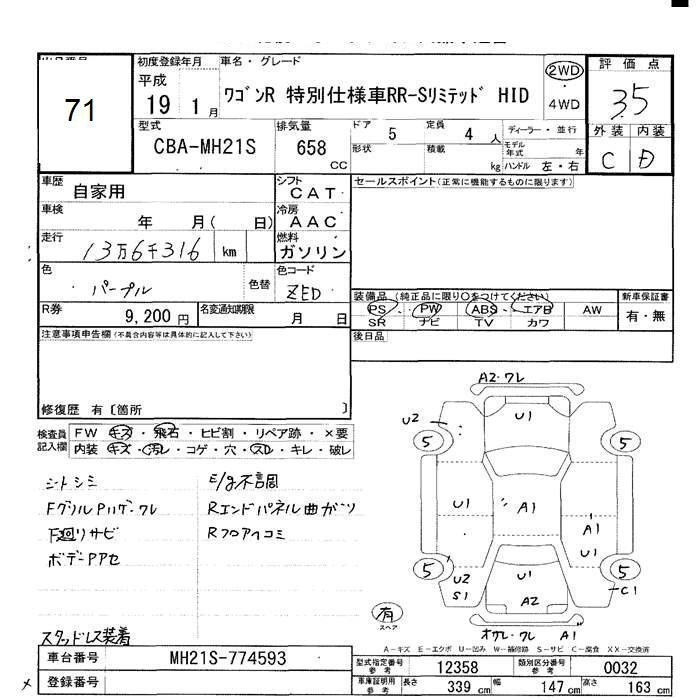 71
初度登録年月
平成
19 1 月
車名・グレード
ワゴンR 特別仕様車RR-Sリミテッド HID
2WD
・
4WD
評価点
3.5
外装 内装
C D
型式
CBA-MH21S
排気量
658
CC
ドア 5 定員 4 人
形状 積載 kg
ディーラー・並行
モデル年式 年
ハンドル 左・右
車歴 自家用
シフト CAT
セールスポイント(正常に機能するものに限ります)
車検 年 月( 日)
冷房 AAC
走行 13万6千316 km
燃料 ガソリン
色 パープル 色替
色コード ZED
R券 9,200 円
名変通知期限 月 日
装備品(純正品に限り○をつけてください)
PS・PW・ABS・エアB AW
SR ナビ TV カワ
新車保証書
有・無
後日品
注意事項申告欄(不具合内容等は具体的に記入して下さい)
修復歴 有〔箇所 〕
検査員記入欄
FW キズ・飛石・ヒビ割・リペア跡・×要
内装 キズ・汚レ・コゲ・穴・スレ・キレ・破レ
シートシミ
FグリルPハゲ・ワレ
下廻リサビ
ボデーPアセ
スタッドレス装着
E/g不調
Rエンドパネル曲ガリ
Rフロア凹コミ
A2・ワレ
U1
U2
5
5
U1
A1
A1
U1
5
5
U2
S1
U1
A2
C1
有
スペア
オサレ・ワレ A1
A-キズ E-エクボ U-凹み W-補修跡 S-サビ C-腐食 XX-交換済
車台番号 MH21S-774593
登録番号
型式指定番号 参考 12358
類別区分番号 参考 0032
車庫証明用 参考 長さ 339 cm 幅 147 cm 高さ 163 cm